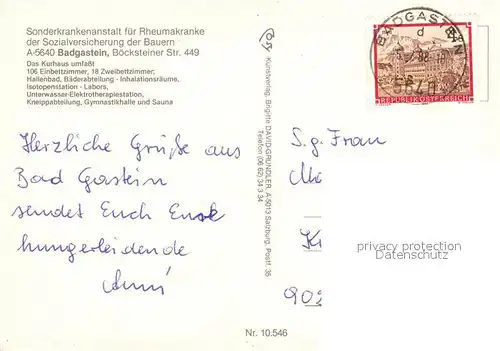 Sonderkrankenanstalt für Rheumakranke
der Sozialversicherung der Bauern
A-5640 Badgastein, Böcksteiner Str. 449
Das Kurhaus umfaßt
106 Einbettzimmer, 18 Zweibettzimmer,
Hallenbad, Bäderabteilung - Inhalationsräume,
Isotopenstation - Labors,
Unterwasser-Elektrotherapiestation,
Kneippabteilung, Gymnastikhalle und Sauna
Herzliche Grüße aus
Bad Gastein
sendet Euch Eure
hungerleidende
Kunstverlag, Brigitte DAVID-GRÜNDLER, A-5013 Salzburg, Postf. 35
Telefon (06 62) 34 3 34
BADGASTEIN
d
5640
REPUBLIK ÖSTERREICH
S.g. Frau
privacy protection
Datenschutz
902
Nr. 10.546